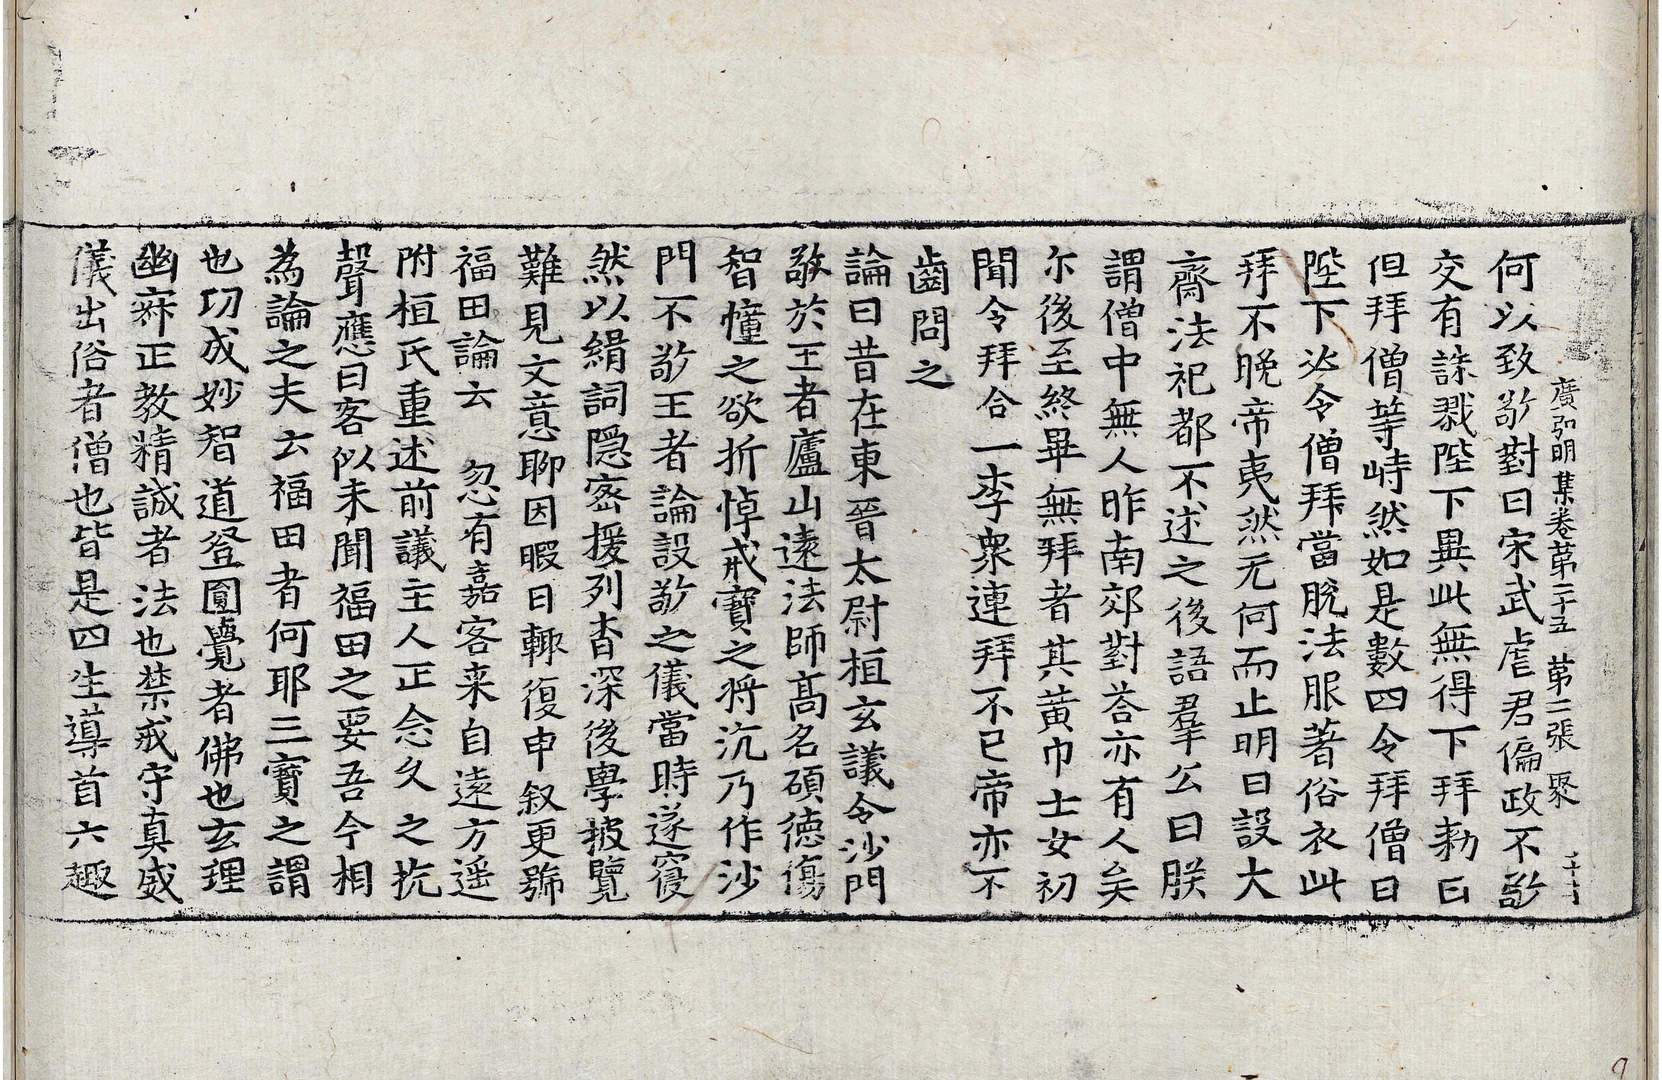 廣弘明集卷第二十五　第二張　聚
何以致敬對曰宋武虐君偏政不敬
交有誅戮陛下異此無得下拜勑曰
但拜僧等峙然如是數四令拜僧曰
陛下必令僧拜當脫法服著俗衣此
拜不晚帝夷然无何而止明日設大
齋法祀都不述之後語羣公曰朕
謂僧中無人昨南郊對荅亦有人矣
尒後至終畢無拜者其黃巾士女初
聞令拜合一李衆連拜不已帝亦不
齒問之
論曰昔在東晉太尉桓玄議令沙門
敬於王者廬山遠法師高名碩德傷
智幢之欲折悼戒寶之將沉乃作沙
門不敬王者論設敬之儀當時遂寢
然以緝詞隱密援列杳深後學披覽
難見文意聊因暇日輙復申叙更號
福田論云　忽有嘉客来自遠方遥
附桓氏重述前議主人正念久之抗
聲應曰客似未聞福田之要吾今相
為論之夫云福田者何耶三寶之謂
也切成妙智道登圓覺者佛也玄理
幽寂正教精誠者法也禁戒守真威
儀出俗者僧也皆是四生導首六趣